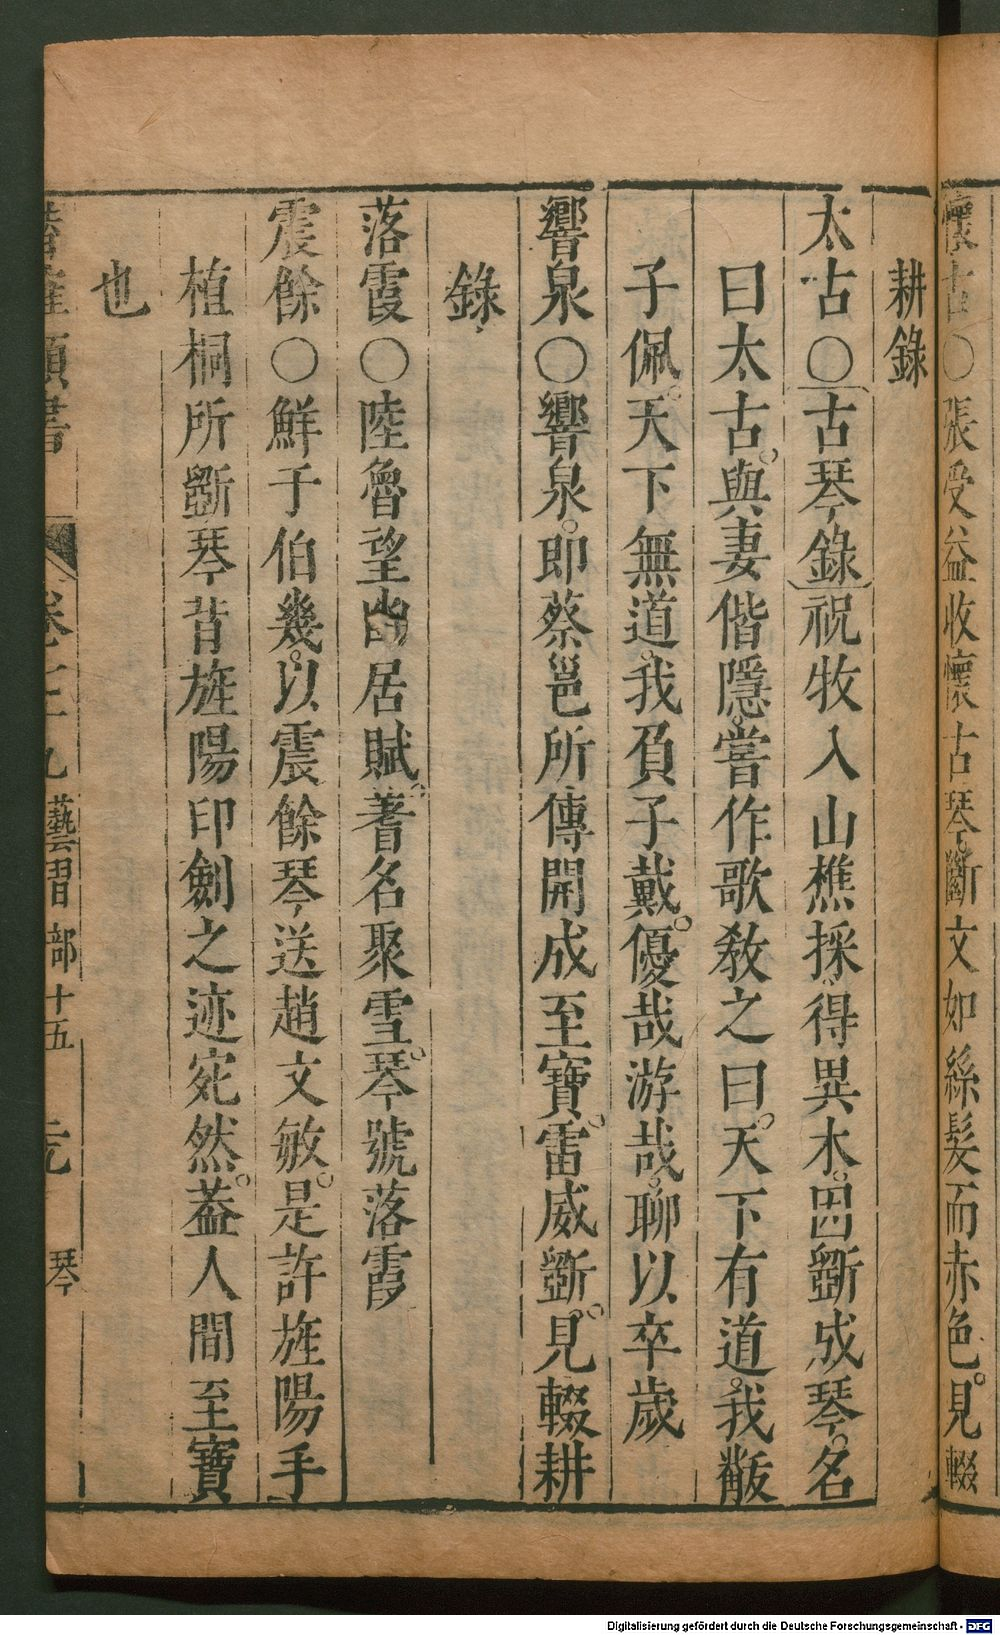 懷古○張受益收懷古琴斷文如絲髮而赤色。見輟
耕錄
太古○古琴錄祝牧入山樵採。得異木。因斵成琴。名
曰太古。與妻偕隱。嘗作歌敎之曰。天下有道。我黻
子佩。天下無道。我負子戴。優哉游哉。聊以卒歲
響泉○響泉。卽蔡邕所傳開成至寶。雷威斵。見輟耕
錄
落霞○陸魯望幽居賦。耆名聚雪。琴號落霞
震餘○鮮于伯幾。以震餘琴送趙文敏。是許旌陽手
植桐所斵。琴背旌陽印劍之迹宛然。葢人間至寶
也
卷 九 藝習部十五 琴
Digitalisierung gefördert durch die Deutsche Forschungsgemeinschaft - DFG